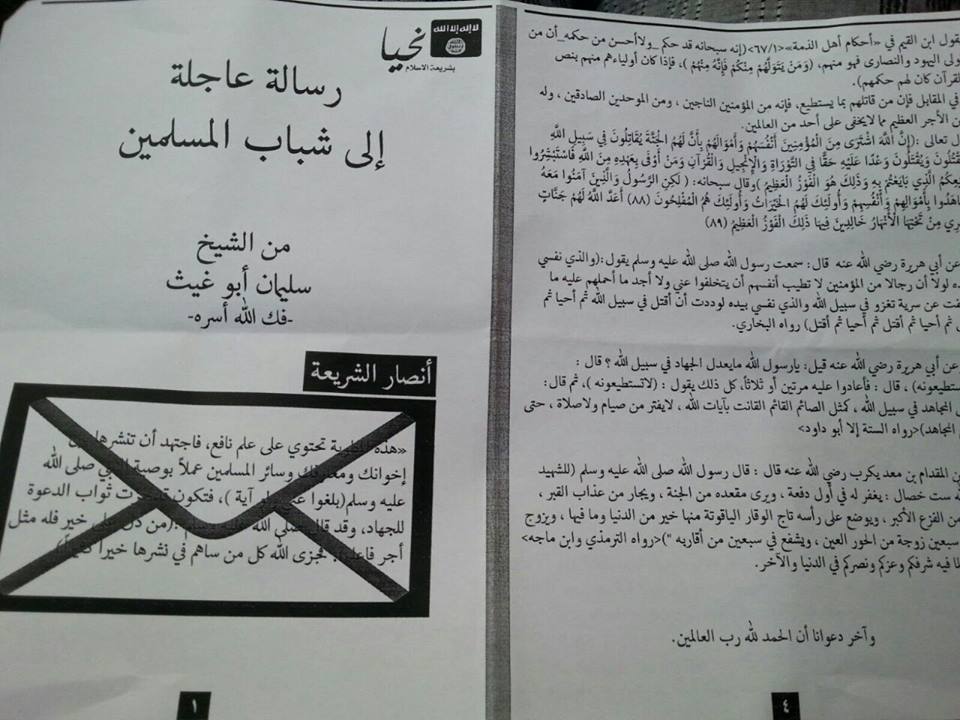 لا إله إلا الله
نحيا
بشريعة الاسلام
رسالة عاجلة
إلى شباب المسلمين
من الشيخ
سليمان أبو غيث
-فك الله أسره-
أنصار الشريعة
«هذه تحتوي على علم نافع، فاجتهد أن تنشرها
إخوانك وسائر المسلمين عملاً بوصية صلى الله
عليه وسلم(بلغوا آية )، فتكون ثواب الدعوة
للجهاد، وقد قال صلى الله :(من على خير فله مثل
أجر الله كل من ساهم في نشرها خيراً
١
يقول ابن القيم في «أحكام أهل الذمة»<٦٧/١>(إنه سبحانه قد حكم _ولاأحسن من حكمه_أن من
اليهود والنصارى فهو منهم، (وَمَنْ يَتَوَلَّهُمْ مِنْكُمْ فَإِنَّهُ مِنْهُمْ )، فإذا كان أولياءهم منهم بنص
القرآن كان لهم حكمهم).
في المقابل فإن من قاتلهم بما يستطيع، فإنه من المؤمنين الناجين ، ومن الموحدين الصادقين ، وله
من الأجر العظيم مما لايخفى على أحد من العالمين.
تعالى :(إِنَّ اللَّهَ اشْتَرَى مِنَ الْمُؤْمِنِينَ أَنْفُسَهُمْ وَأَمْوَالَهُمْ بِأَنَّ لَهُمُ الْجَنَّةَ يُقَاتِلُونَ فِي سَبِيلِ اللَّهِ
وَيُقْتَلُونَ وَعْدًا عَلَيْهِ حَقًّا فِي التَّوْرَاةِ وَالْإِنْجِيلِ وَالْقُرْآنِ وَمَنْ أَوْفَى بِعَهْدِهِ مِنَ اللَّهِ فَاسْتَبْشِرُوا
الَّذِي بَايَعْتُمْ بِهِ وَذَلِكَ هُوَ الْفَوْزُ الْعَظِيمُ )وقال سبحانه: ( لَكِنِ الرَّسُولُ وَالَّذِينَ آمَنُوا مَعَهُ
بِأَمْوَالِهِمْ وَأَنْفُسِهِمْ وَأُولَئِكَ لَهُمُ الْخَيْرَاتُ وَأُولَئِكَ هُمُ الْمُفْلِحُونَ (٨٨) أَعَدَّ اللَّهُ لَهُمْ جَنَّاتٍ
مِنْ تَحْتِهَا الْأَنْهَارُ خَالِدِينَ فِيهَا ذَلِكَ الْفَوْزُ الْعَظِيمُ (٨٩)
عن أبي هريرة رضي الله عنه قال: سمعت رسول الله صلى الله عليه وسلم يقول:(والذي نفسي
لولا أن رجالا من المؤمنين لا تطيب أنفسهم أن يتخلفوا عني ولا أجد ما أحملهم عليه ما
عن سرية تغزو في سبيل الله والذي نفسي بيده لوددت أن أقتل في سبيل الله ثم أحيا ثم
ثم أحيا ثم أقتل ثم أحيا ثم أقتل) رواه البخاري.
عن أبي هريرة رضي الله عنه قيل: يارسول الله مايعدل الجهاد في سبيل الله ؟ قال :
، قال : فأعادوا عليه مرتين أو ثلاثاً، كل ذلك يقول : (لاتستطيعونه )، ثم قال:
المجاهد في سبيل الله ، كمثل الصائم القائم القانت بآيات الله ، لايفتر من صيام ولاصلاة ، حتى
المجاهد)<رواه الستة إلا أبو داود>
المقدام بن معد يكرب رضي الله عنه قال : قال رسول الله صلى الله عليه وسلم (للشهيد
ست خصال : يغفر له في أول دفعة ، ويرى مقعده من الجنة ، ويجار من عذاب القبر ،
من الفزع الأكبر ، ويوضع على رأسه تاج الوقار الياقوتة منها خير من الدنيا وما فيها ، ويزوج
سبعين زوجة من الحور العين ، ويشفع في سبعين من أقاربه ")<رواه الترمذي وابن ماجه>
فيه شرفكم وعزكم ونصركم في الدنيا والآخر.
وآخر دعوانا أن الحمد لله رب العالمين.
٤